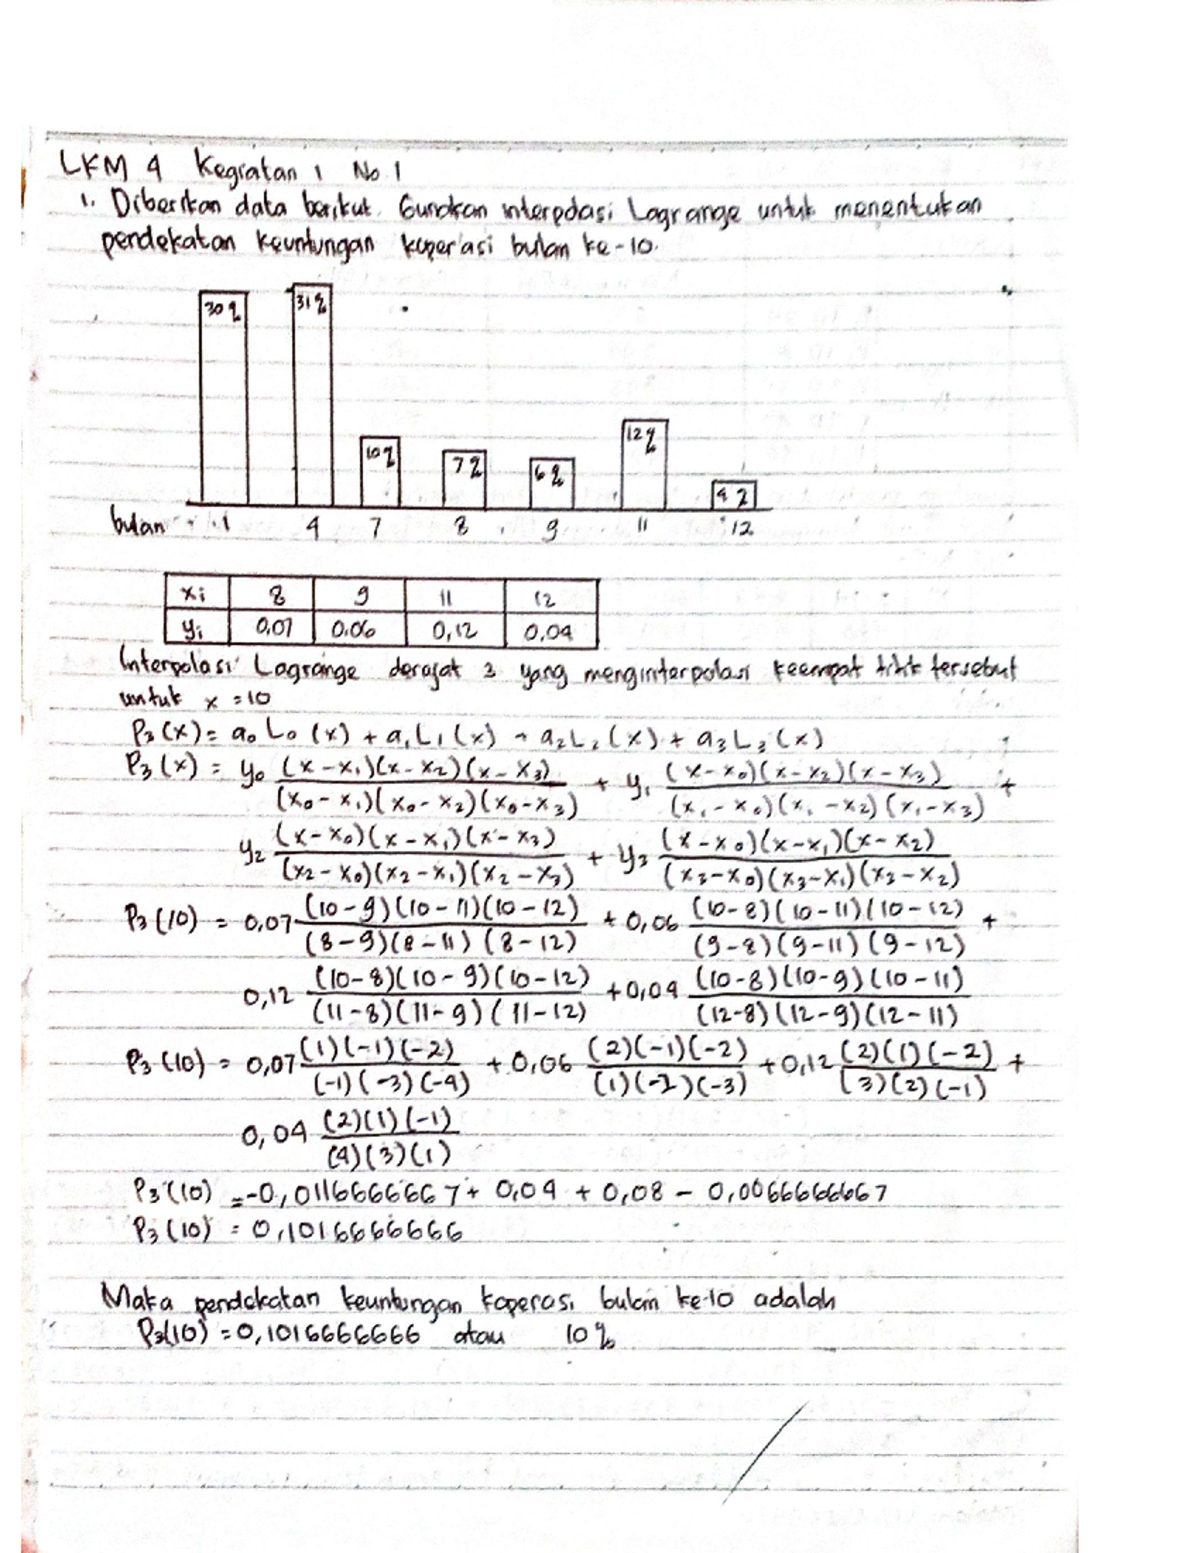 LKM 4 Kegiatan 1 No 1
1. Diberikan data berikut. Gunakan interpolasi Lagrange untuk menentukan
pendekatan keuntungan koperasi bulan ke-10.
30% 31% 10% 7% 6% 12% 4%
bulan 1 4 7 8 9 11 12
xi 8 9 11 12
yi 0,07 0.06 0,12 0,04
Interpolasi Lagrange derajat 3 yang menginterpolasi keempat titik tersebut
untuk x = 10
P3(x) = a0 L0(x) + a1 L1(x) + a2 L2(x) + a3 L3(x)
P3(x) = y0 (x-x1)(x-x2)(x-x3) / (x0-x1)(x0-x2)(x0-x3) + y1 (x-x0)(x-x2)(x-x3) / (x1-x0)(x1-x2)(x1-x3) +
y2 (x-x0)(x-x1)(x-x3) / (x2-x0)(x2-x1)(x2-x3) + y3 (x-x0)(x-x1)(x-x2) / (x3-x0)(x3-x1)(x3-x2)
P3(10) = 0,07 (10-9)(10-11)(10-12) / (8-9)(8-11)(8-12) + 0,06 (10-8)(10-11)(10-12) / (9-8)(9-11)(9-12) +
0,12 (10-8)(10-9)(10-12) / (11-8)(11-9)(11-12) + 0,04 (10-8)(10-9)(10-11) / (12-8)(12-9)(12-11)
P3(10) = 0,07 (1)(-1)(-2) / (-1)(-3)(-4) + 0,06 (2)(-1)(-2) / (1)(-2)(-3) + 0,12 (2)(1)(-2) / (3)(2)(-1) +
0,04 (2)(1)(-1) / (4)(3)(1)
P3(10) = -0,0116666667 + 0,04 + 0,08 - 0,0066666667
P3(10) = 0,1016666666
Maka pendekatan keuntungan koperasi bulan ke-10 adalah
P3(10) = 0,1016666666 atau 10%